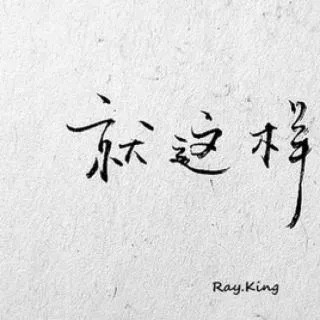 就这样
Ray.King